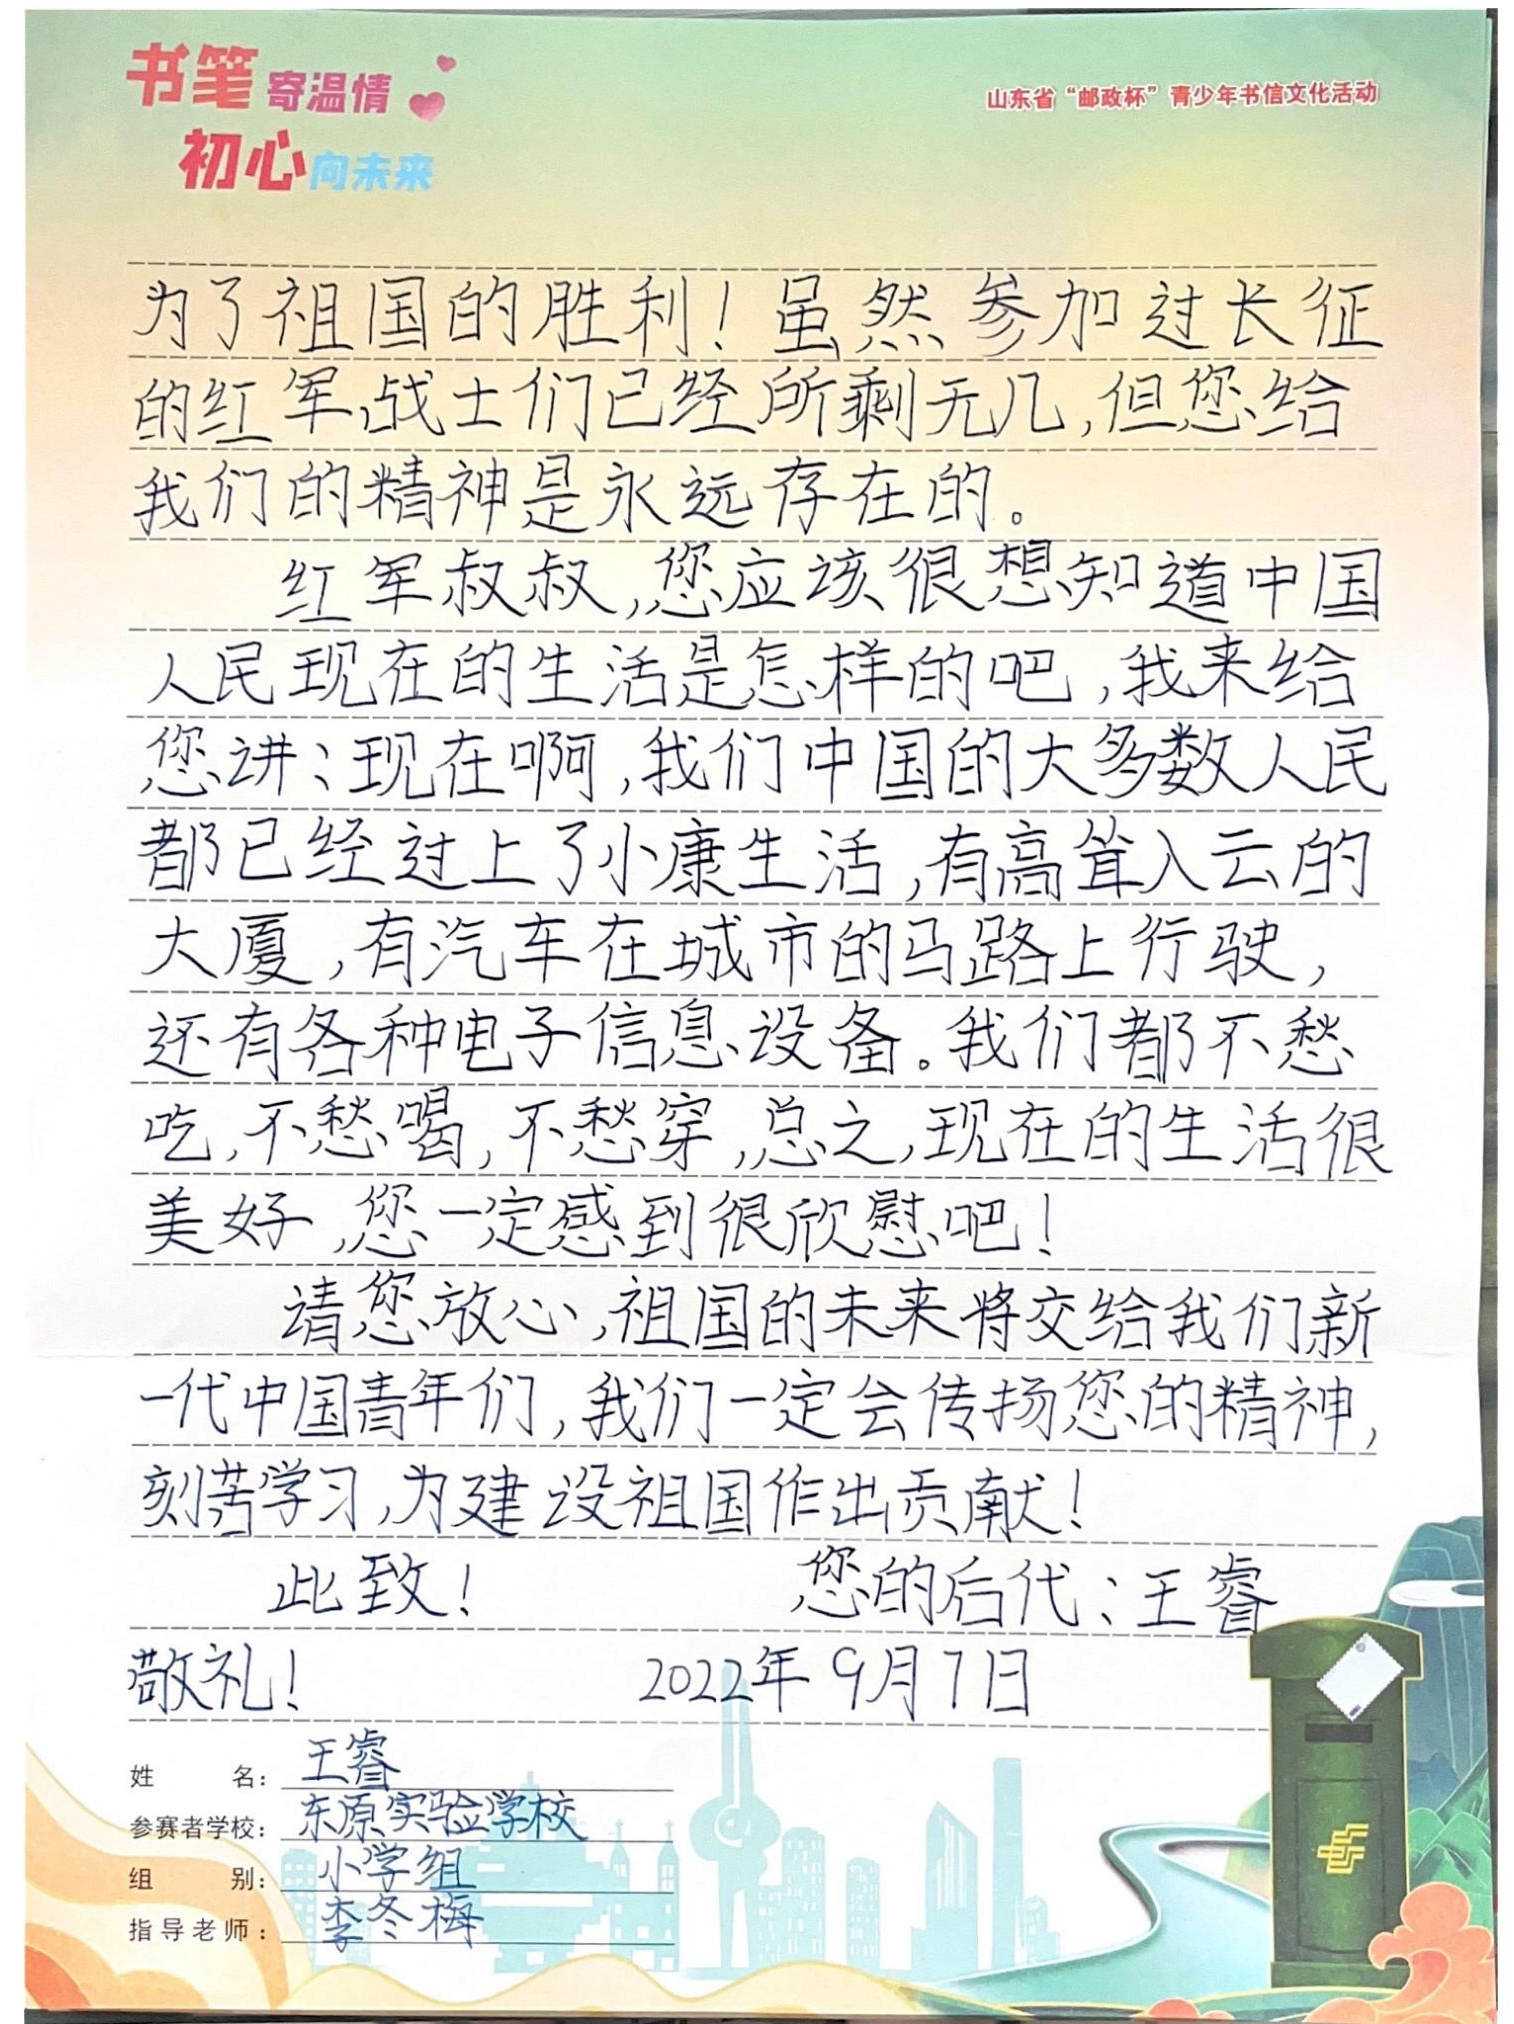 书笔寄温情
初心向未来
山东省“邮政杯”青少年书信文化活动
为了祖国的胜利！虽然参加过长征
的红军战士们已经所剩无几,但您给
我们的精神是永远存在的。
红军叔叔,您应该很想知道中国
人民现在的生活是怎样的吧,我来给
您讲:现在啊,我们中国的大多数人民
都已经过上了小康生活,有高耸入云的
大厦,有汽车在城市的马路上行驶,
还有各种电子信息设备。我们都不愁
吃,不愁喝,不愁穿,总之,现在的生活很
美好,您一定感到很欣慰吧！
请您放心,祖国的未来将交给我们新
一代中国青年们,我们一定会传扬您的精神,
刻苦学习,为建设祖国作出贡献！
此致！ 您的后代:王睿
敬礼！ 2022年9月7日
姓名：王睿
参赛者学校：东原实验学校
组别：小学组
指导老师：李冬梅